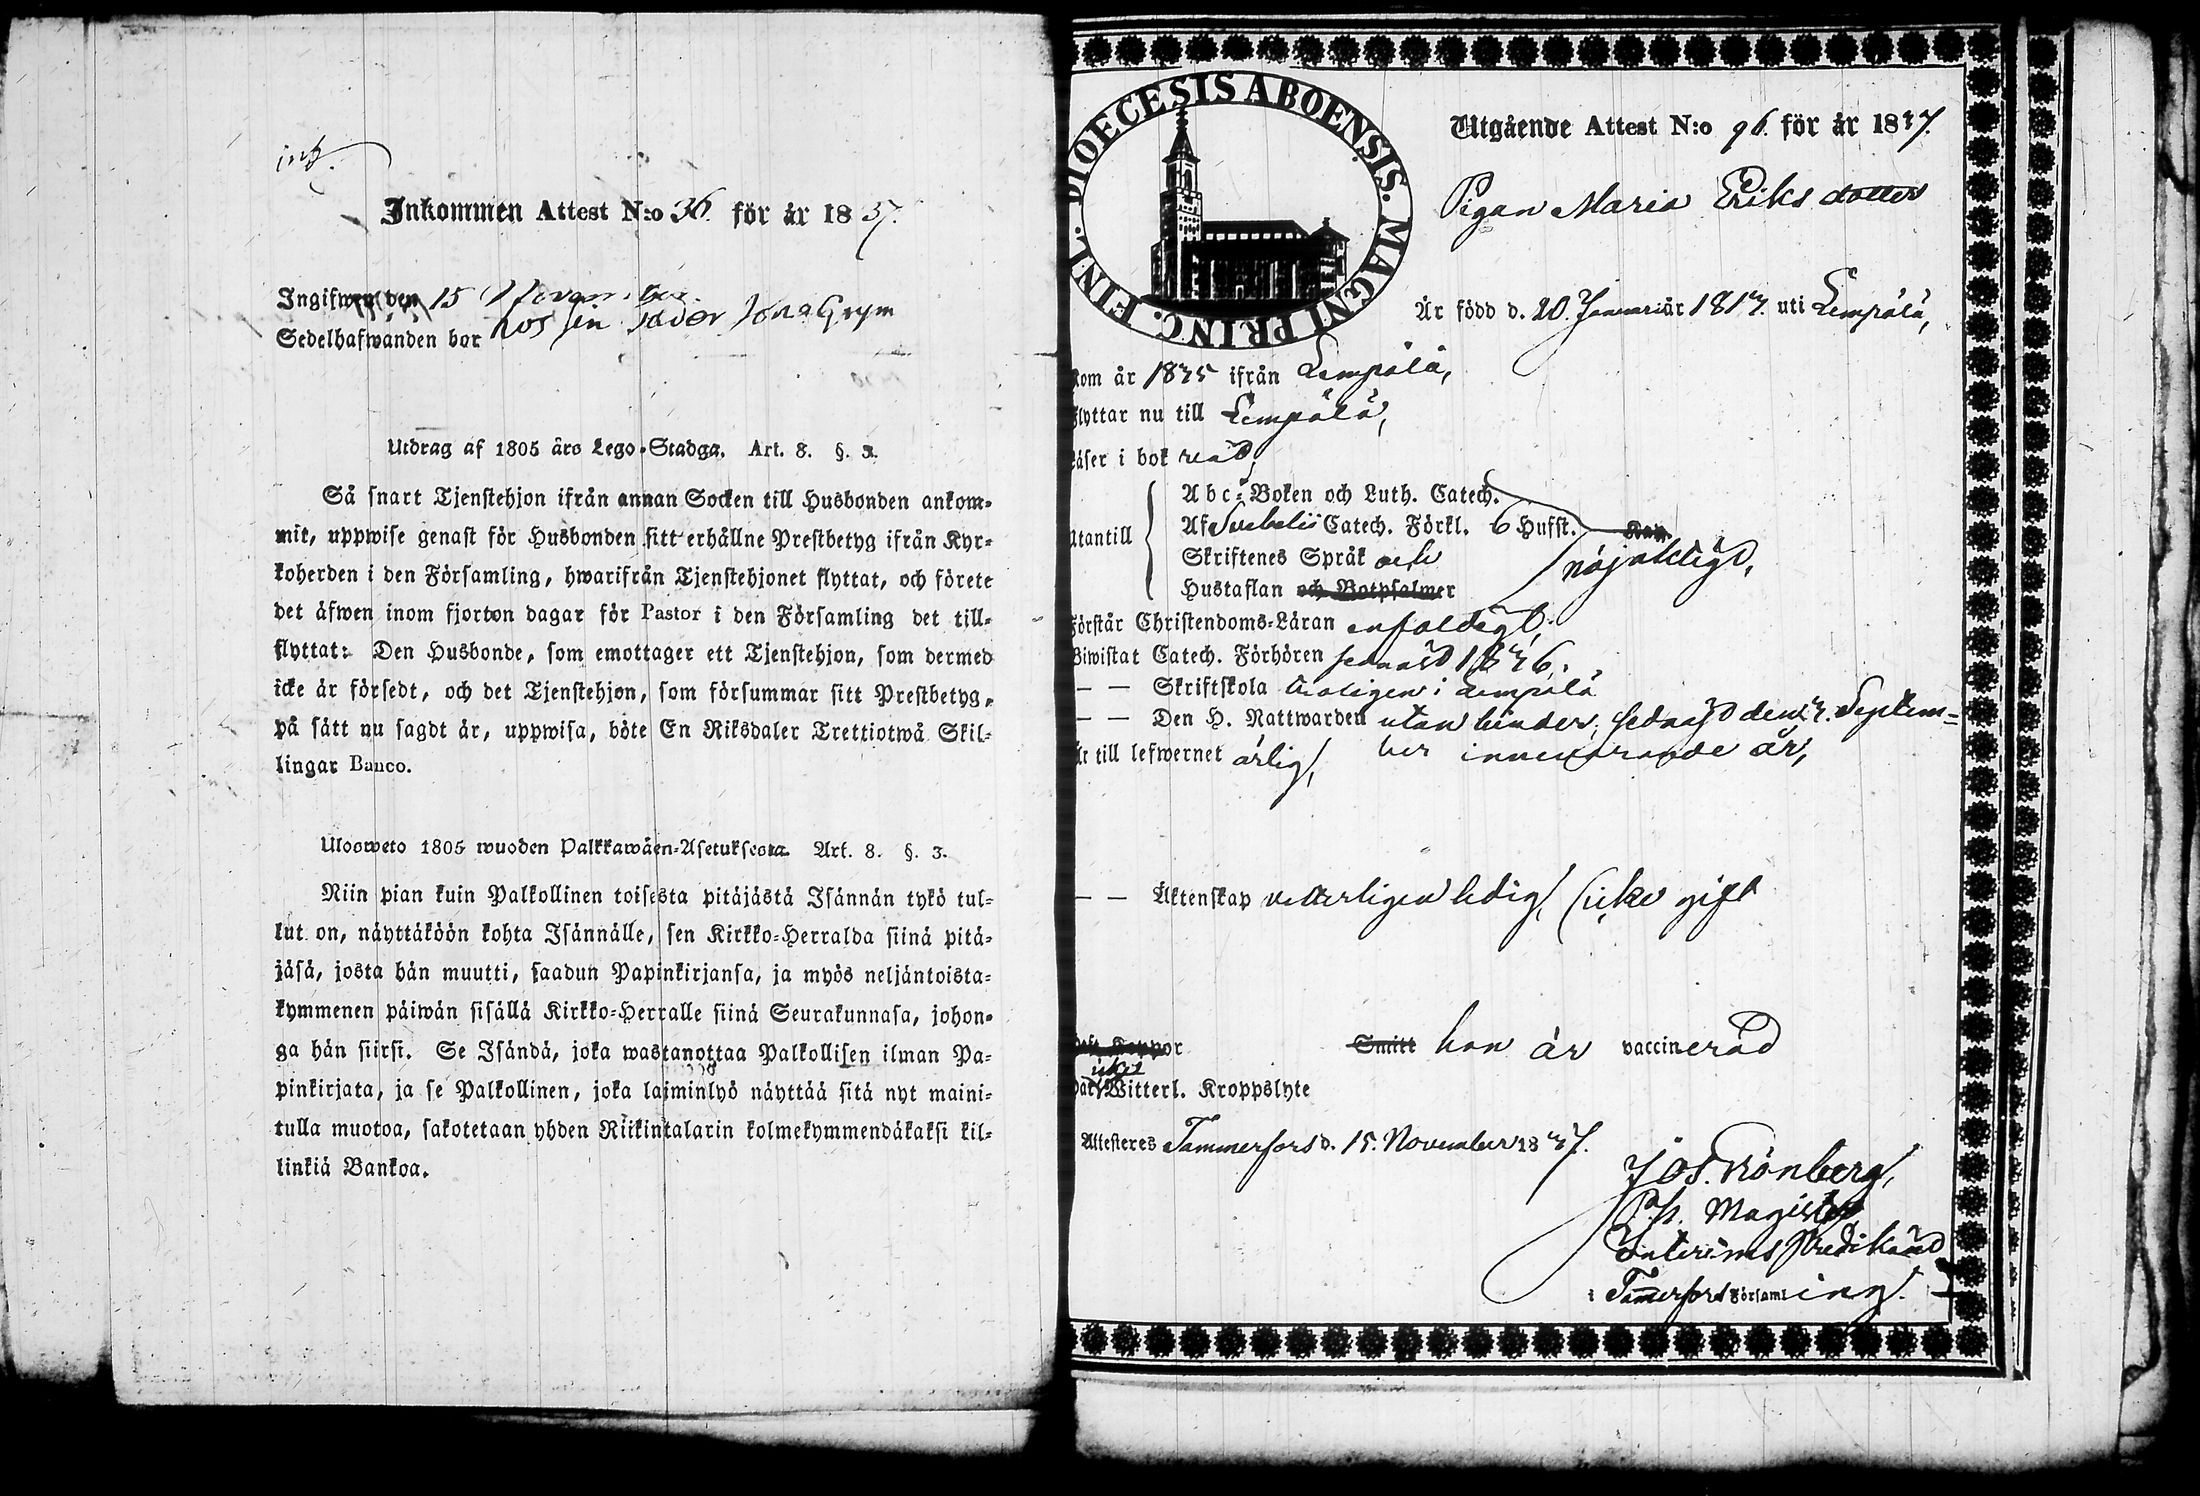 ink.
Inkommen Attest N:o 36. för år 1837.
Ingifwen den 15 November.
Sedelhafwanden bor hos sin
Utdrag af 1805 års Lego-Stadga. Art. 8. §. 3.
Så snart Tjenstehjon ifrån annan Socken till Husbonden ankom-
mit, uppwise genast för Husbonden sitt erhållne Prestbetyg ifrån Kyr-
koherden i den Församling, hwarifrån Tjenstehjonet flyttat, och förete
det äfwen inom fjorton dagar för Pastor i den Församling det till-
flyttat: Den Husbonde, som emottager ett Tjenstehjon, som dermed
icke är försedt, och det Tjenstehjon, som försummar sitt Prestbetyg,
på sätt nu sagdt är, uppwisa, böte En Riksdaler Trettiotwå Skil-
lingar Banco.
Ulosweto 1805 wuoden Palkkawäen-Asetuksesta. Art. 8. §. 3.
Niin pian kuin Palkollinen toisesta pitäjästä Isännän tykö tul-
lut on, näyttäköön kohta Isännälle, sen Kirkko-Herralda siinä pitä-
jäsä, josta hän muutti, saadun Papinkirjansa, ja myös neljäntoista-
kymmenen päiwän sisällä Kirkko-Herralle siinä Seurakunnasa, johon-
ga hän siirsi. Se Isändä, joka wastanottaa Palkollisen ilman Pa-
pinkirjata, ja se Palkollinen, joka laiminlyö näyttää sitä nyt maini-
tulla muotoa, sakotetaan yhden Riikintalarin kolmekymmendäkaksi kil-
linkiä Bankoa.
DIOECESIS ABOENSIS. MAGNI PRINC. FINL.
Utgående Attest N:o 96. för år 1837.
Pigan Maria Eriksdotter
Är född d. 20 Januari år 1817. uti Lempälä,
Kom år 1835 ifrån Lempälä,
Flyttar nu till Lempälä,
Läser i bok
Utantill
Abc-Boken och Luth. Catech.
Af Svebelii Catech. Förkl. 6 Husst.
Skriftenes Språk och
nöjaktigt,
Hustaflan och Botpsalmer
Förstår Christendoms-Läran enfaldigt,
Biwistat Catech. Förhören sednast 1836.
— — Skriftskola i Lempälä
— — Den H. Nattwarden utan hinder, sednast den 3. Septem=
Är till lefwernet ärlig, ber innevarande år,
— — Äktenskap vetterligen ledig, icke gift
Haft Koppor Smitt hon är vaccinerad
Har icke Witterl. Kroppslyte
Attesteres Tammerfors d. 15. November 1837.
Jos. Grönberg,
Ph. Magister
Interims Predikand
i Tammerfors Församling.